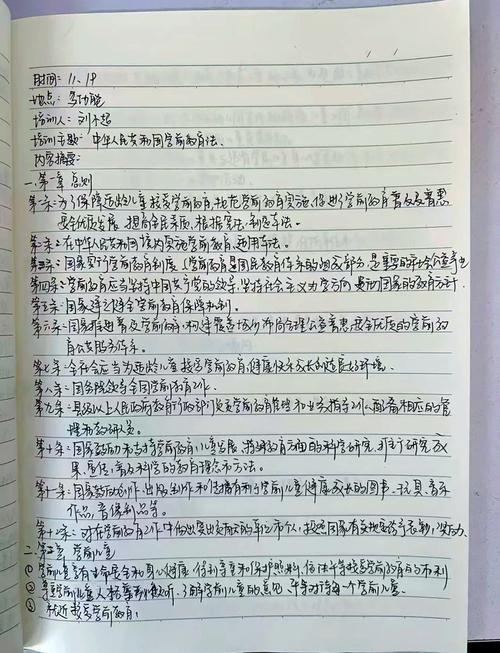 时间：11、19
地点：多功能
培训人：刘
培训主题：中华人民共和国学前教育法。
内容摘要：
一.第一章 总则
第一条：为了保障适龄儿童接受学前教育，规范学前教育实施，促进学前教育普及普惠
安全优质发展，提高全民素质，根据宪法，制定本法。
第二条：在中华人民共和国境内实施学前教育，适用本法。
第三条：国家实行学前教育制度，学前教育是国民教育体系的组成部分，是重要的社会公益事业
第四条：学前教育应当坚持中国共产党的领导，坚持社会主义办学方向，贯彻国家的教育方针。
第五条：国家建立健全学前教育保障机制。
第六条：国家推进普及学前教育，构建覆盖城乡布局合理公益普惠安全优质的学前教
育公共服务体系。
第七条：全社会应当为适龄儿童接受学前教育，健康快乐成长创造良好环境。
第八条：国务院领导全国学前教育工作。
第九条：县级以上人民政府教育行政部门负责学前教育管理和业务指导工作，配备相应的管
理和教研人员。
第十条：国家鼓励和支持学前教育，儿童发展，特殊教育方面的科学研究，推广研究成
果，宣传，普及科学的教育理念和方法。
第十一条：国家鼓励创作，出版，制作和传播有利于学前儿童健康成长的图书，玩具，音乐
作品，音像制品等。
第十二条：对在学前教育工作中做出突出贡献的单位和个人，按照国家有关规定给予表彰，奖励。
二.第二章 学前儿童
① 学前儿童享有生命安全和身心健康，得到尊重和保护照料，依法平等接受学前教育的权利
② 尊重学前儿童人格，
③ 就近接受学前教育；